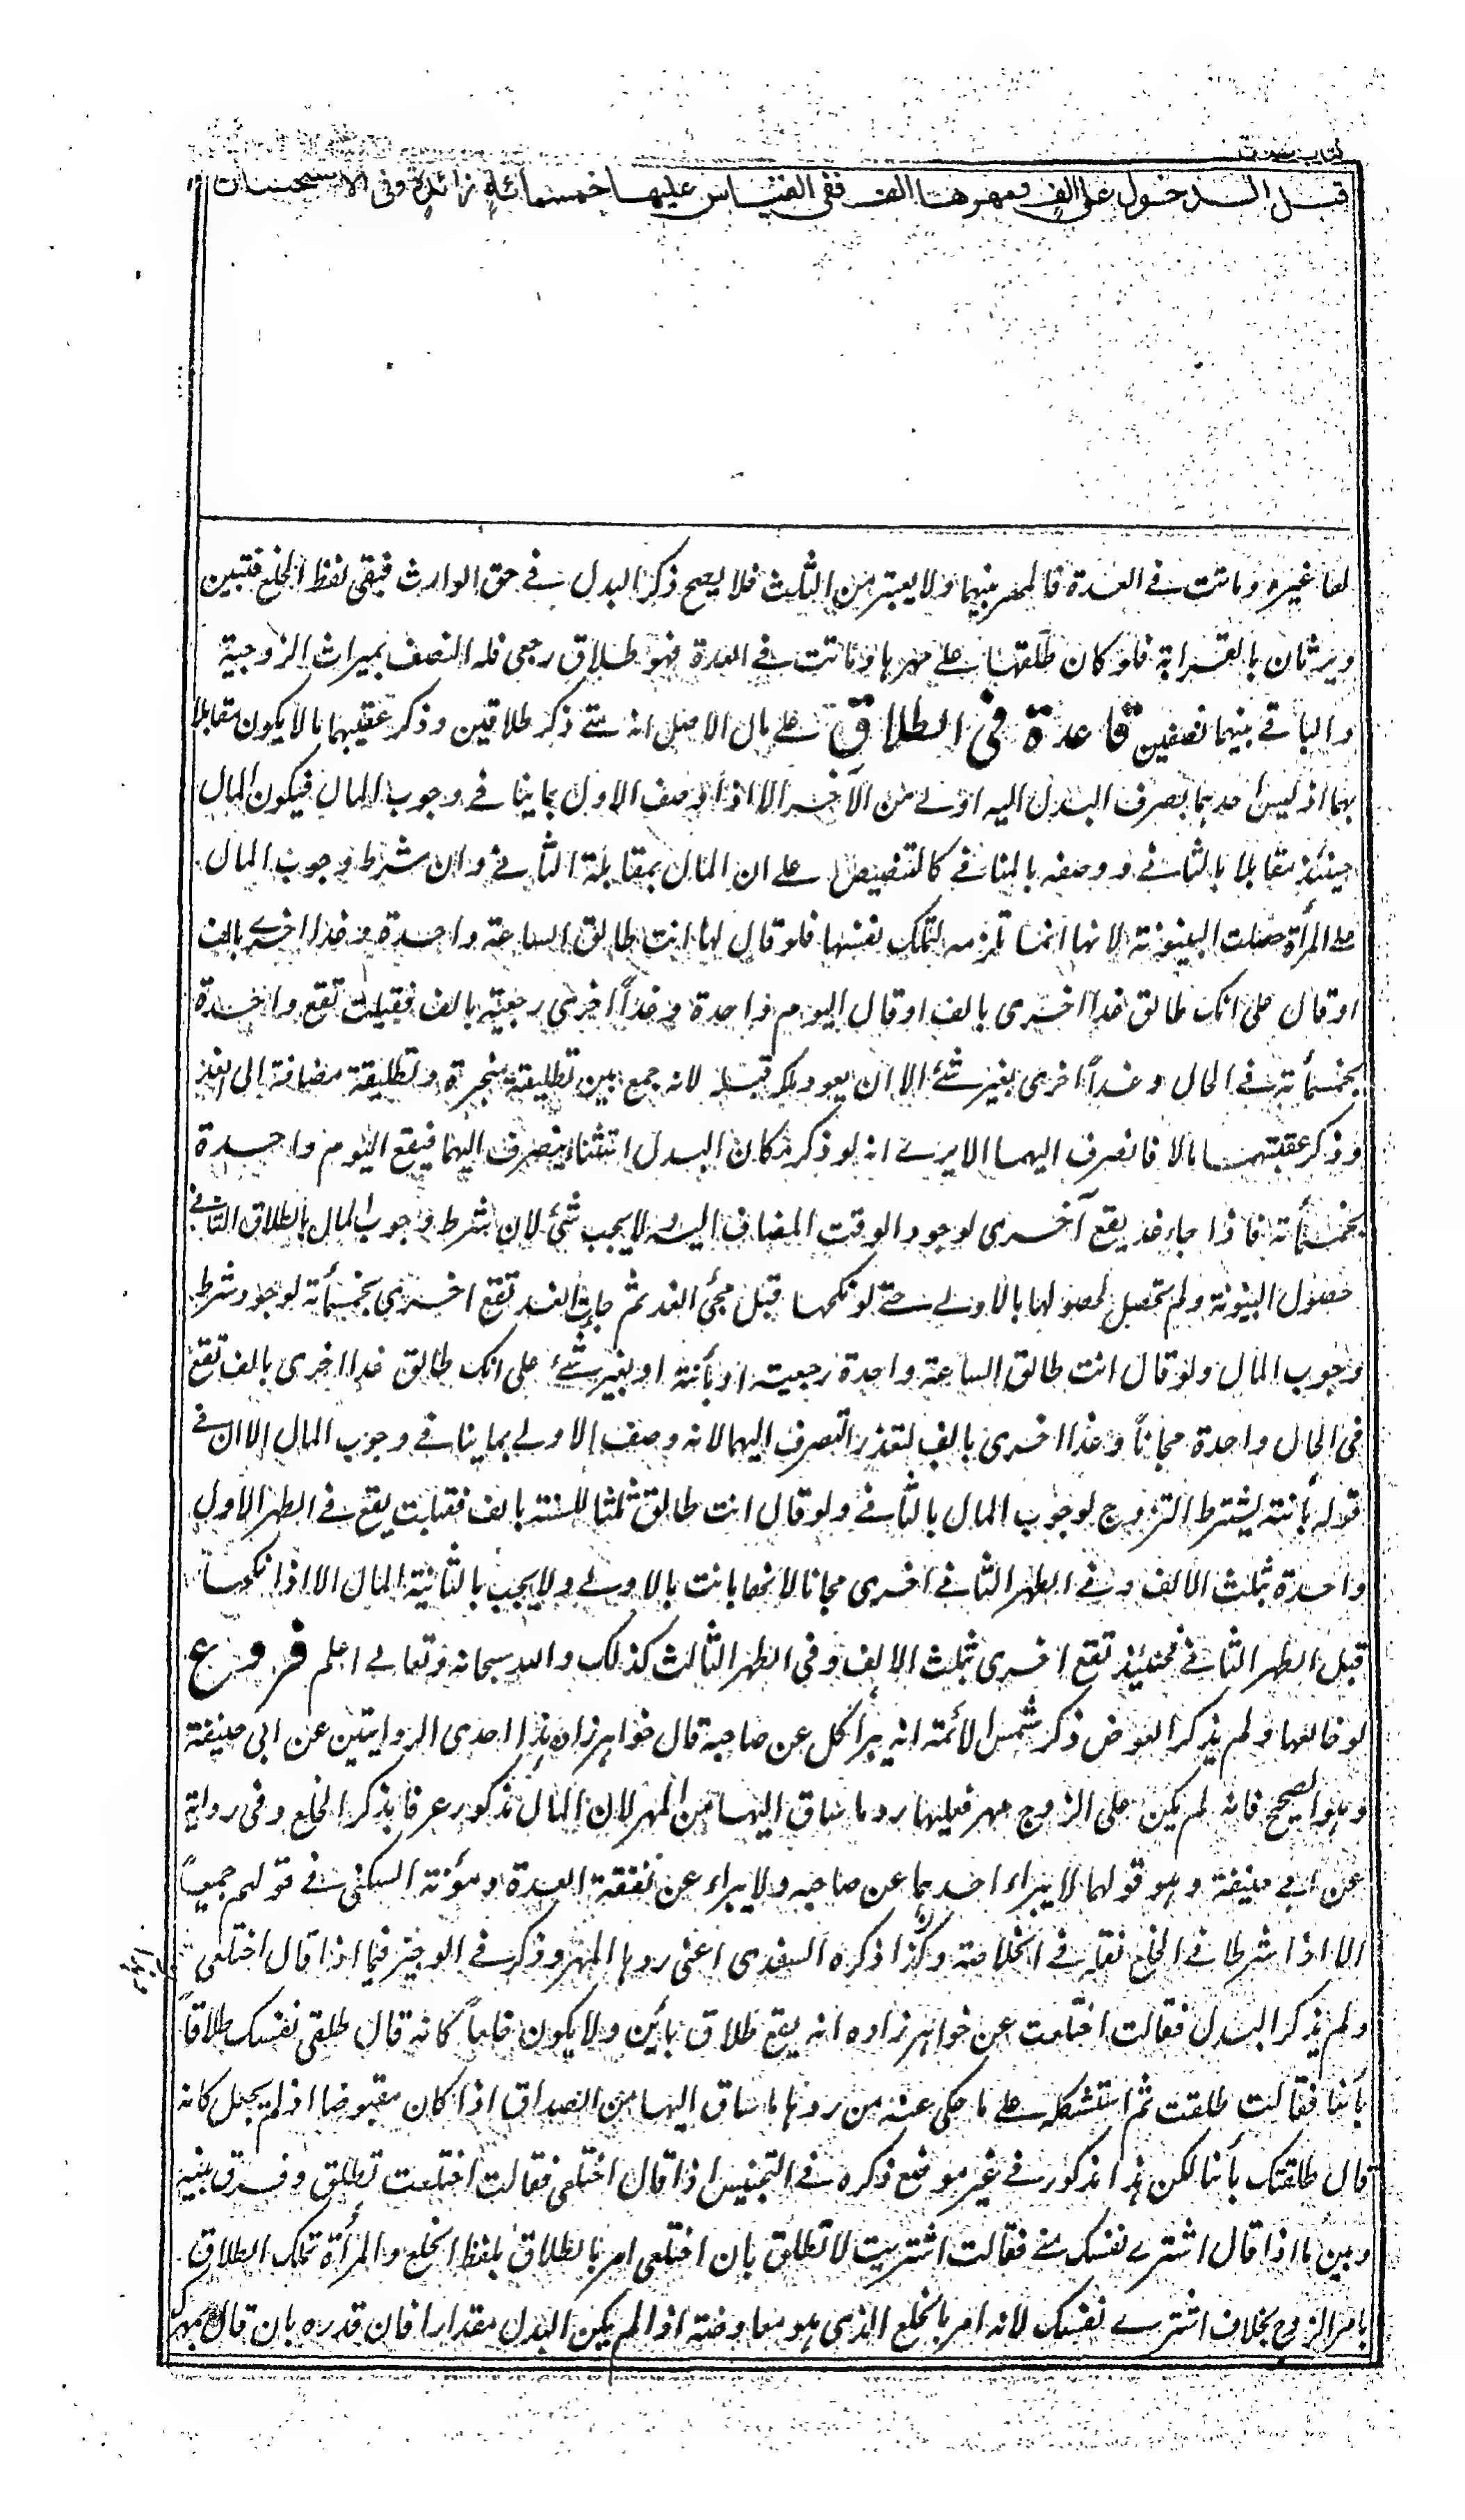 قبل الدخول على الف ومهرها الف ففى القياس عليها خمسمائة زائدة وفى الاستحسان
لها غيره وماتت في العدة فالمهر بينهما ولا يعتبر من الثلث فلا يصح ذكر البدل في حق الوارث فبقى لفظ الخلع فتبين
ويرثان بالقرابة فلو كان طلقها على مهرها وماتت في العدة فهو طلاق رجعى فله النصف بميراث الزوجية
والباقي بينهما نصفين قاعدة فى الطلاق على مال الاصل انه متى ذكر طلاقين وذكر عقيبهما مالا يكون مقابلا
بهما اذ ليس احدهما بصرف البدل اليه اولى من الآخر الا اذا وصف الاول بما ينافي وجوب المال فيكون المال
حينئذ مقابلا بالثاني ووصفه بالمنافي كالتنصيص على ان المال بمقابلة الثاني وان شرط وجوب المال
على المرأة حصلت البينونة لانها انما تلزمه لتملك نفسها فلو قال لها انت طالق الساعة واحدة وغدا اخرى بالف
او قال على انك طالق غدا اخرى بالف او قال اليوم واحدة وغداً اخرى رجعية بالف فقبلت تقع واحدة
بخمسمأة في الحال وغداً اخرى بغير شئ الا ان يعود ملكه قبله لانه جمع بين تطليقة منجزة وتطليقة مضافة الى الغد
وذكر عقبتهما مالا فانصرف اليهما الا يرى انه لو ذكر مكان البدل استثناء ينصرف اليهما فيقع اليوم واحدة
بخمسمأة فاذا جاء غد يقع آخرى لوجود الوقت المضاف اليه ولا يجب شئ لان شرط وجوب المال بالطلاق الثاني
حصول البينونة ولم تحصل لحصولها بالاولى حتى لو نكحها قبل مجئ الغد ثم جاء الغد تقع اخرى بخمسمأة لوجود شرط
وجوب المال ولو قال انت طالق الساعة واحدة رجعية او بائنة او بغير شئ على انك طالق غدا اخرى بالف تقع
فى الحال واحدة مجاناً وغدا اخرى بالف لتعذر الصرف اليهما لانه وصف الاولى بما ينافي وجوب المال الا ان في
قوله بائنة يشترط التزوج لوجوب المال بالثاني ولو قال انت طالق ثلثا للسنة بالف فقبلت يقع في الطهر الاول
واحدة بثلث الالف وفي الطهر الثاني اخرى مجانا لانها بانت بالاولى ولا يجب بالثانية المال الا اذا نكحها
قبل الطهر الثاني فحينئذ تقع اخرى بثلث الالف وفى الطهر الثالث كذلك والله سبحانه وتعالى اعلم فروع
لو خالعها ولم يذكر العوض ذكر شمس الأئمة انه يبرأ كل عن صاحبه قال خواهرزاده هذا احدى الروايتين عن ابى حنيفة
وهو الصحيح فانه لم يكن على الزوج مهر فعليها رد ما ساق اليها من المهر لان المال مذكور عرفا بذكر الخلع وفى رواية
عن ابي حنيفة وهو قولهما لا يبراء احدهما عن صاحبه ولا يبراء عن نفقة العدة ومؤنة السكنى في قولهم جميعاً
الا اذا شرطا في الخلع نقله في الخلاصة وكذا ذكره السغدى اعنى ردها المهر وذكر في الوجيز فيما اذا قال اختلعى
ولم يذكر البدل فقالت اختلعت عن خواهرزاده انه يقع طلاق بائن ولا يكون خلعاً كانه قال طلقى نفسك طلاقاً
بائنا فقالت طلقت ثم استشكله على ما حكى عنه من ردها ما ساق اليها من الصداق اذا كان مقبوضا اذ لم يجعل كانه
قال طلقتك بائنا لكن هذا مذكور في غير موضع ذكره في التجنيس اذا قال اختلعى فقالت اختلعت تطلق وفرق بينه
وبين ما اذا قال اشترى نفسك منى فقالت اشتريت لا تطلق بان اختلعى امر بالطلاق بلفظ الخلع والمرأة تملك الطلاق
بامر الزوج بخلاف اشترى نفسك لانه امر بالخلع الذى هو معاوضة اذا لم يكن البدل مقدارا فان قدره بان قال بمهرك